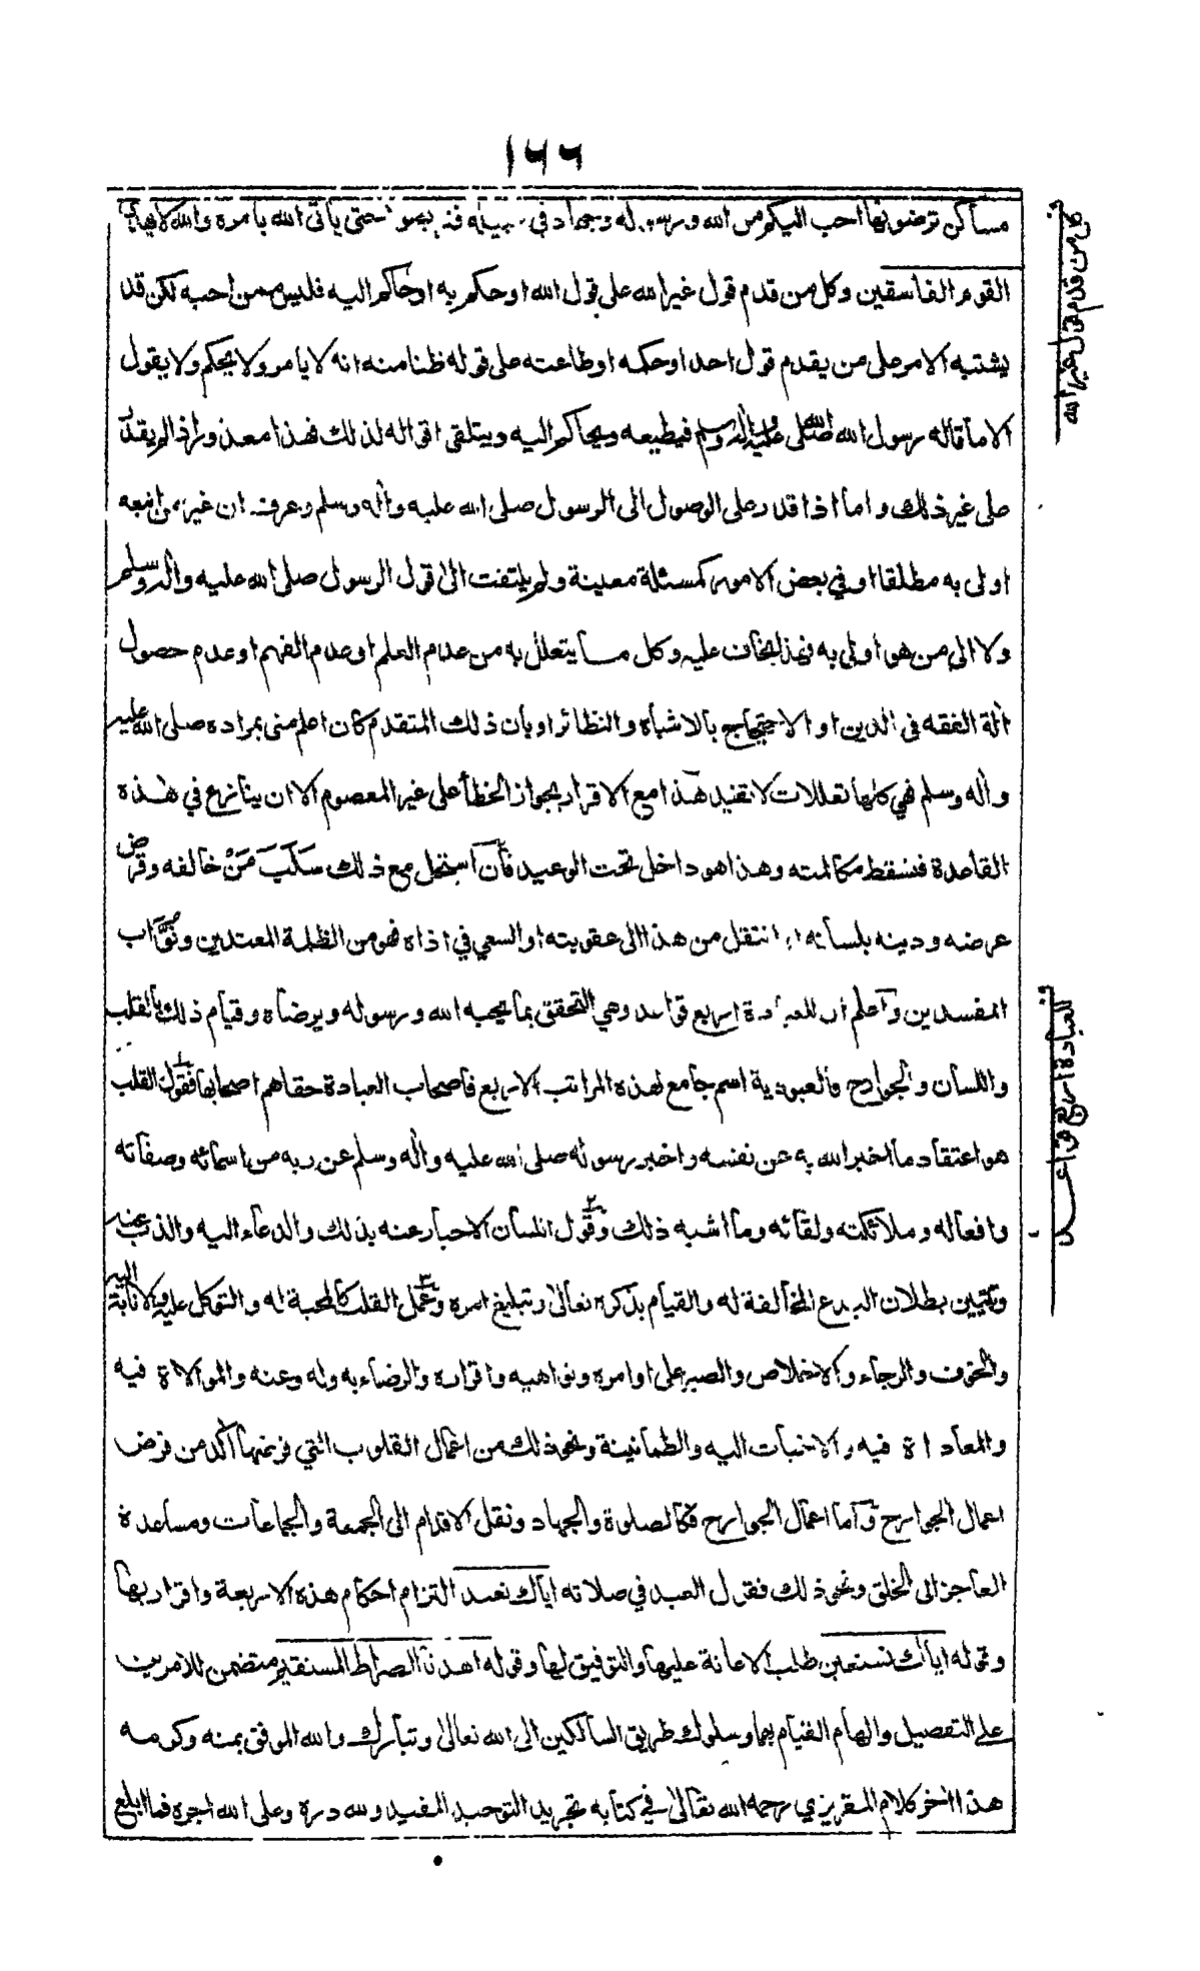 ١٦٦
مساكن ترضونها احب اليكم من الله ورسوله وجهاد في سبيله فتربصوا حتى يأتى الله بامره والله لا يهدي
القوم الفاسقين وكل من قدم قول غير الله على قول الله او حكم به او حاكم اليه فليس ممن احبه لكن قد
يشتبه الامر على من يقدم قول احد او حكمه او طاعته على قوله ظنا منه انه لا يامر ولا يحكم ولا يقول
الا ما قاله رسول الله صلى الله عليه واله وسلم فيطيعه ويحاكم اليه ويتلقى اقواله لذلك فهذا معذور اذا لم يقدر
على غير ذلك واما اذا قدر على الوصول الى الرسول صلى الله عليه واله وسلم وعرف ان غير من اتبعه
اولى به مطلقا او في بعض الامور كمسئلة معينة ولم يلتفت الى قول الرسول صلى الله عليه واله وسلم
ولا الى من هو اولى به فهذا يخاف عليه وكل ما يتعلل به من عدم العلم او عدم الفهم او عدم حصول
الة الفقه فى الدين او الاحتجاج بالاشباه والنظائر او بان ذلك المتقدم كان اعلم منى بمراده صلى الله عليه
واله وسلم فهي كلها تعللات لا تفيد هذا مع الاقرار بجواز الخطأ على غير المعصوم الا ان ينازع في هذه
القاعدة فتسقط مكالمته وهذا هو داخل تحت الوعيد فان استحل مع ذلك سَلَبَ مَنْ خالفه وقرض
عرضه ودينه بلسانه او انتقل من هذا الى عقوبته او السعي في اذاه فهو من الظلمة المعتدين ونُوّاب
المفسدين واعلم ان للعبادة اربع قواعد وهي التحقق بما يحبه الله ورسوله ويرضاه وقيام ذلك بالقلب
واللسان والجوارح فالعبودية اسم جامع لهذه المراتب الاربع فاصحاب العبادة حقا هم اصحابها فقول القلب
هو اعتقاد ما اخبر الله به عن نفسه واخبر رسوله صلى الله عليه واله وسلم عن ربه من اسمائه وصفاته
وافعاله وملائكته ولقائه وما اشبه ذلك وقول اللسان الاخبار عنه بذلك والدعاء اليه والذب عنه
وتبيين بطلان البدع المخالفة له والقيام بذكره تعالى وتبليغ امره وعمل القلب كالمحبة له والتوكل عليه والانابة اليه
والخوف والرجاء والاخلاص والصبر على اوامره ونواهيه واقراره والرضاء به وله وعنه والموالاة فيه
والمعاداة فيه والاخبات اليه والطمانينة ونحو ذلك من اعمال القلوب التي فرضها اكد من فرض
اعمال الجوارح واما اعمال الجوارح فكالصلوة والجهاد ونقل الاقدام الى الجمعة والجماعات ومساعدة
العاجز الى الخلق ونحو ذلك فقول العبد في صلاته اياك نعبد التزام احكام هذه الاربعة واقرار بها
وقوله اياك نستعين طلب الاعانة عليها والتوفيق لها وقوله اهدنا الصراط المستقيم متضمن للامرين
على التفصيل والهام القيام بهما وسلوك طريق السالكين الى الله تعالى وتبارك والله الموفق بمنه وكرمه
هذا اخر كلام المقريزي رحمه الله تعالى في كتابه تجريد التوحيد المفيد ولله دره وعلى الله اجره فما ابلغ
ف كل من قدم قول غير الله
ف للعبادة اربع قواعد